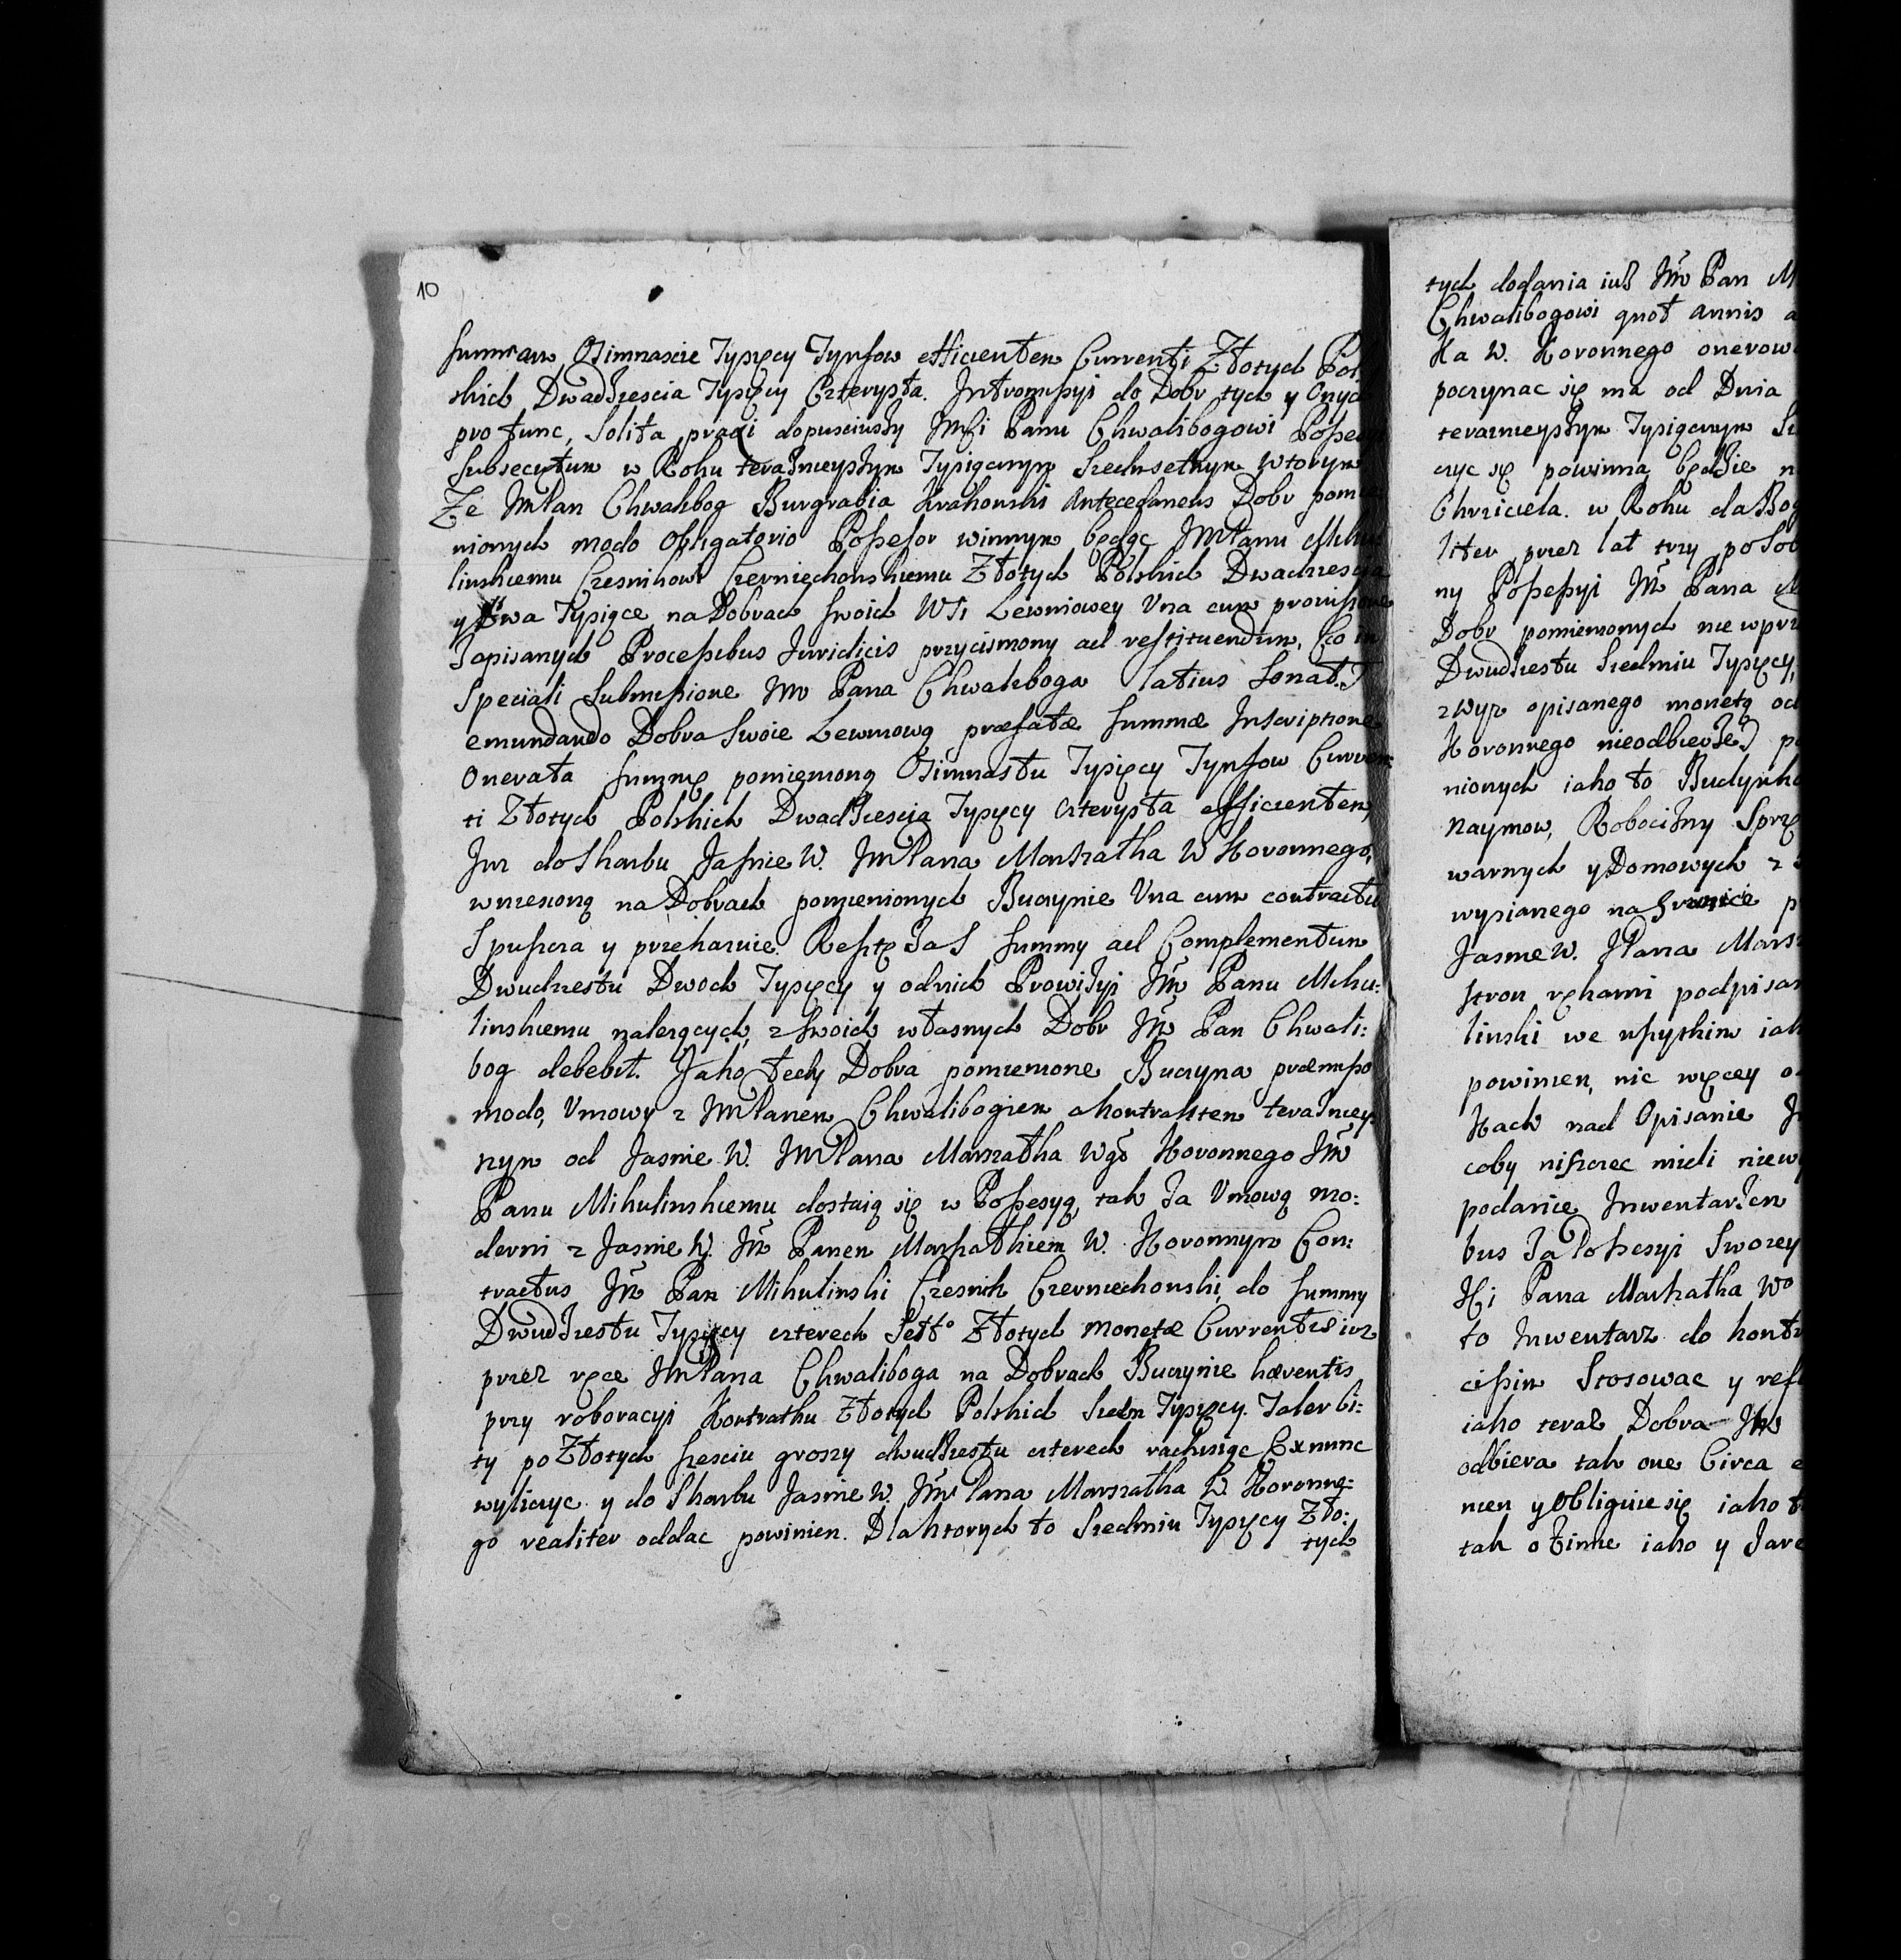 10
summam Osimnascie Tysięcy Tynfow efficientem Currenti Złotych Pol
skich Dwadziescia Tysięcy Czterysta. Intromissyi do Dobr tych y Onych
pro tunc, Solita praxi dopusciwszy JMśi Panu Chwalibogowi Possessyi
Subsecutum w Roku teraznieyszym Tysiącznym Siedmsetnym wtorym
Ze JMPan Chwalibog Burgrabia Krakowski Antecedaneus Dobr pomie
nionych modo Obligatorio Possesor winnym będąc JMPanu Miku
linskiemu Czesnikowi Czerniechowskiemu Złotych Polskich Dwadziescia
y Dwa Tysiące na Dobrach swoich WSi Lewniowey Una cum provisione
Zapisanych Processibus Juridicis przycisniony ad restituendum, (co in
Speciali Submissione Jm Pana Chwaliboga latius Sonat.)
emundando Dobra Swoie Lewniową præfatæ summæ Inscriptione
onerata summę pomienioną Osimnastu Tysięcy Tynfow Curren:
ti Złotych Polskich Dwadziescia Tysięcy czterysta efficientem,
Juz do Skarbu Jasnie W. JMPana Marszałka W Koronnego,
wniesioną na Dobrach pomienionych Buczynie Una cum contractu
Spuszcza y przekazuie. Resztę zaś summy ad Complementum
Dwudziestu Dwoch Tysięcy y od nich Prowizyi Jm Panu Miku:
linskiemu nalezących, z swoich własnych Dobr Jm Pan Chwali:
bog debebit. Jako tedy Dobra pomienione Buczyna præmisso
modo, Umowy z JMPanem Chwalibogiem a kontraktem teraznieys
szym od Jasnie W. JMPana Marszałka Wgo Koronnego Jm
Panu Mikulinskiemu dostaią się w Possesyą, tak za Umową mo:
derni z Jasnie W. Jm Panem Marszałkiem W. Koronnym Con:
tractus Jm Pan Mikulinski Czesnik Czerniechowski, do summy
Dwudziestu Tysięcy czterech Sett Złotych monetæ Currentis iuz
przez ręce JMPana Chwaliboga na Dobrach Buczynie hærentis
przy roboracyi Kontraktu Złotych Polskich Siedm Tysięcy. Taler bi:
ty po Złotych szesciu groszy dwudziestu czterech rachuiąc Ex nunc
wyliczyc y do Skarbu Jasnie W. Jm Pana Marszałka W. Koronne:
go realiter oddac powinien. Dla ktorych to Siedmiu Tysięcy Zło:
tych
tych dodania iuż Jm Pan M
Chwalibogowi quot annis a
ka W. Koronnego onerow
poczynac się ma od Dnia
teraznieyszym Tysiącznym Si
czyc się powinna będzie n
Chrziciela. w Roku da Bog
liter przez lat trzy po sob
ny Possessyi Jm Pana M
Dobr pomienionych nie wprz
Dwudziestu Siedmiu Tysięcy,
zwyz opisanego monetą od
Koronnego nieodbierze) p
nionych iako to Budynk
Naymow, Robocizny Sprzę
warnych y Domowych z
wysianego na Gruncie p
Jasnie W. JPana Marsz
stron rękami podpisan
linski we wszystkim iak
powinien, nic więcey o
kach nad Opisanie J
coby niszczec mieli niew
podanie Inwentarzem
bus za Possesyi Swoiey
ki Pana Marszałka Wo
to Inwentarz do kontr
cissim Stosowac y refl
iako teraz Dobra Jm
odbiera tak one Circa e
nien y Obliguie się iako t
tak ozimie iako y Jare